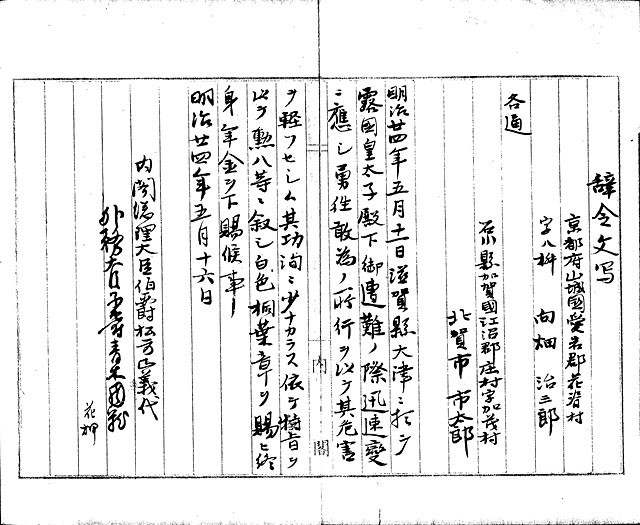 辞令文写
京都府山城國愛宕郡花脊村
字八桝 向畑 治三郎
石川縣加賀國江沼郡庄村字加茂村
北賀市 市太郎
各通
明治廿四年五月十一日滋賀縣大津ニ於テ
露國皇太子殿下御遭難ノ際迅速変
ニ應シ勇往敢為ノ所行ヲ以テ其危害
ヲ軽フセシム其功洵ニ少ナカラス依テ特旨ヲ
以テ勲八等ニ叙シ白色桐葉章ヲ賜ヒ終
身年金ヲ下賜候事
明治廿四年五月十六日
内閣総理大臣伯爵松方正義代
外務大臣子爵青木周蔵
花押
内閣